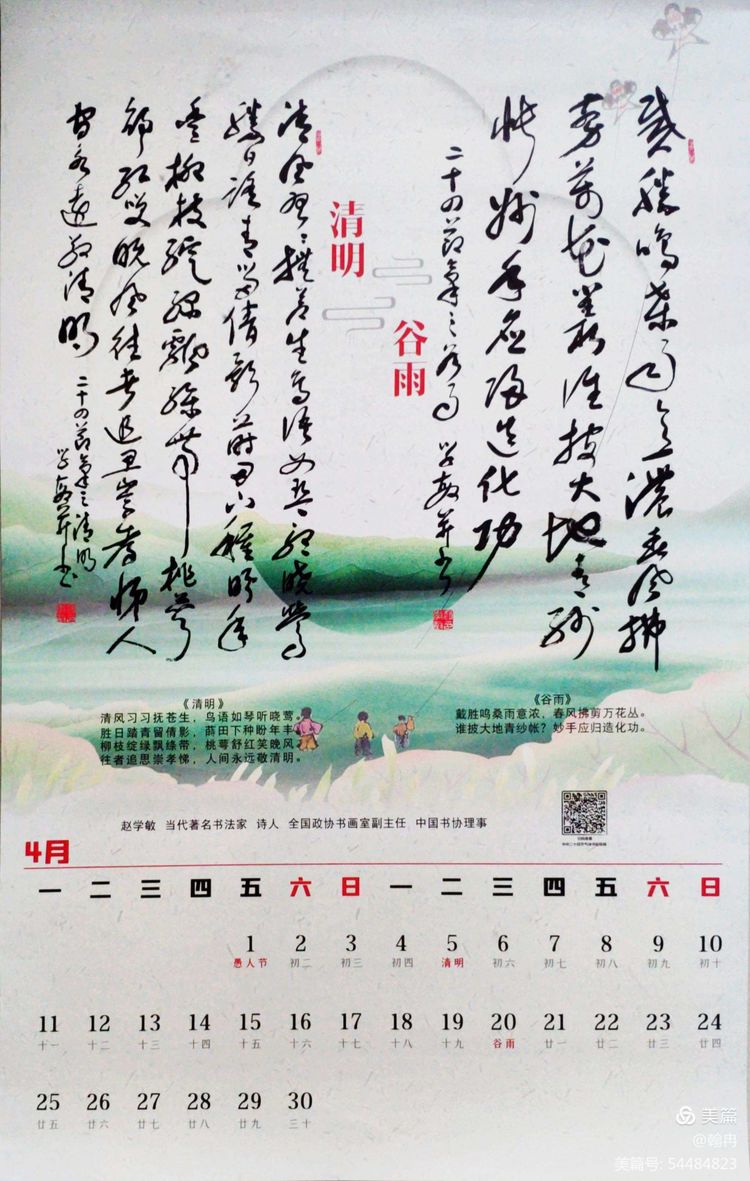 戴胜鸣桑雨意濃春风拂
剪万花丛谁披大地青纱
帐妙手应归造化功
二十四节气之谷雨 学敏并书
谷雨
清明
清风习习抚苍生鸟语如琴听晓莺
胜日踏青留倩影莳田下种盼年
丰柳枝绽绿飘绦带桃萼
舒红笑晚风往者追思崇孝悌人
间永远敬清明
二十四节气之清明
学敏并书
《清明》
清风习习抚苍生,鸟语如琴听晓莺。
胜日踏青留倩影,莳田下种盼年丰。
柳枝绽绿飘绦带,桃萼舒红笑晚风。
往者追思崇孝悌,人间永远敬清明。
《谷雨》
戴胜鸣桑雨意浓,春风拂剪万花丛。
谁披大地青纱帐?妙手应归造化功。
赵学敏 当代著名书法家 诗人 全国政协书画室副主任 中国书协理事
4月
一 二 三 四 五 六 日 一 二 三 四 五 六 日
1 2 3 4 5 6 7 8 9 10
愚人节 初二 初三 初四 清明 初六 初七 初八 初九 初十
11 12 13 14 15 16 17 18 19 20 21 22 23 24
十一 十二 十三 十四 十五 十六 十七 十八 十九 谷雨 廿一 廿二 廿三 廿四
25 26 27 28 29 30
廿五 廿六 廿七 廿八 廿九 三十
美篇
@翰冉
美篇号: 54484823